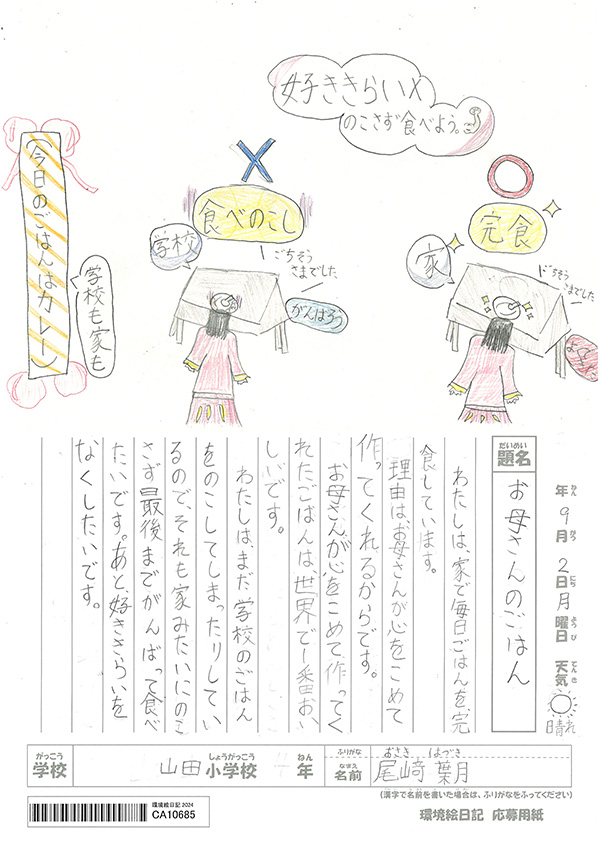 好ききらいX
のこさず食べよう。
今日のごはんはカレー
学校も家も
X
食べのこし
学校
ごちそう
さまでした
がんばろう
完食
家
ごちそう
さまでした
年 9月 2日 月曜日 天気 晴れ
ねん がつ にち ようび てんき
だいめい
題名
お母さんのごはん
わたしは、家で毎日ごはんを、完
食しています。
理由は、お母さんが心をこめて
作ってくれるからです。
お母さんが心をこめて作ってく
れたごはんは、世界で一番おい
しいです。
わたしは、まだ学校のごはん
をのこしてしまったりしてい
るので、それも家みたいにのこ
さず最後までがんばって食べ
たいです。あと、好ききらいを
なくしたいです。
がっこう
学校
しょうがっこう ねん
山田小学校 4年
ふりがな
おさき はづき
なまえ
名前
尾﨑 葉月
(漢字で名前を書いた場合は、ふりがなをふってください)
環境絵日記 2024
CA10685
環境絵日記 応募用紙